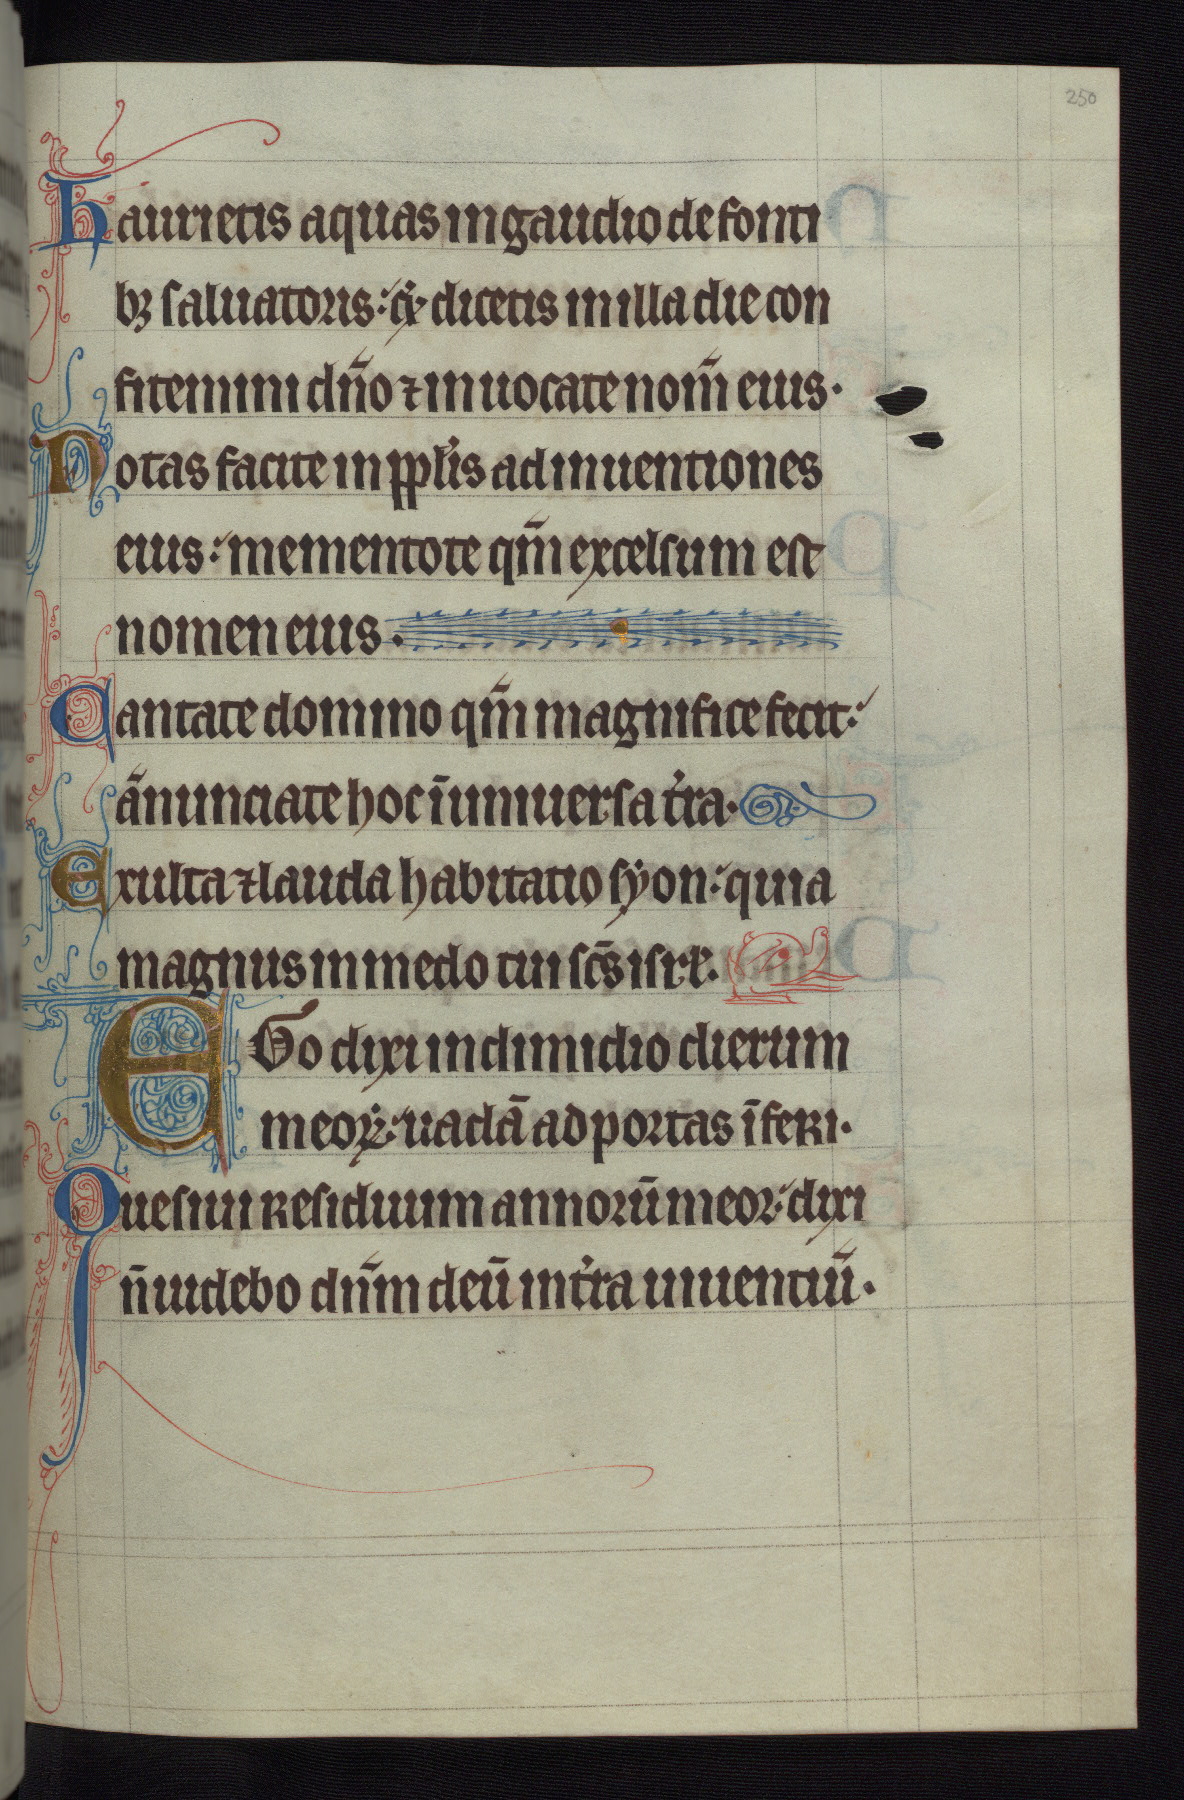 250
Haurietis aquas in gaudio de fonti
bꝫ saluatoris: ⁊ dicetis in illa die con
fitemini dn̄o ⁊ inuocate nom̄ eius.
Notas facite in ppl̓is adinuentiones
eius: mementote qm̄ excelsum est
nomen eius.
Cantate domino qm̄ magnifice fecit:
ānunciate hoc ī uniuersa t̓ra.
Exulta ⁊ lauda habitatio syon: quia
magnus in medo tui sc̄s isrl̓.
EGo dixi in dimidio dierum
meoꝝ: uadā ad portas īferi.
Quesiui residuum annorū meoꝝ: dixi
n̄ uidebo dn̄m deū in t̓ra uiuentiū.